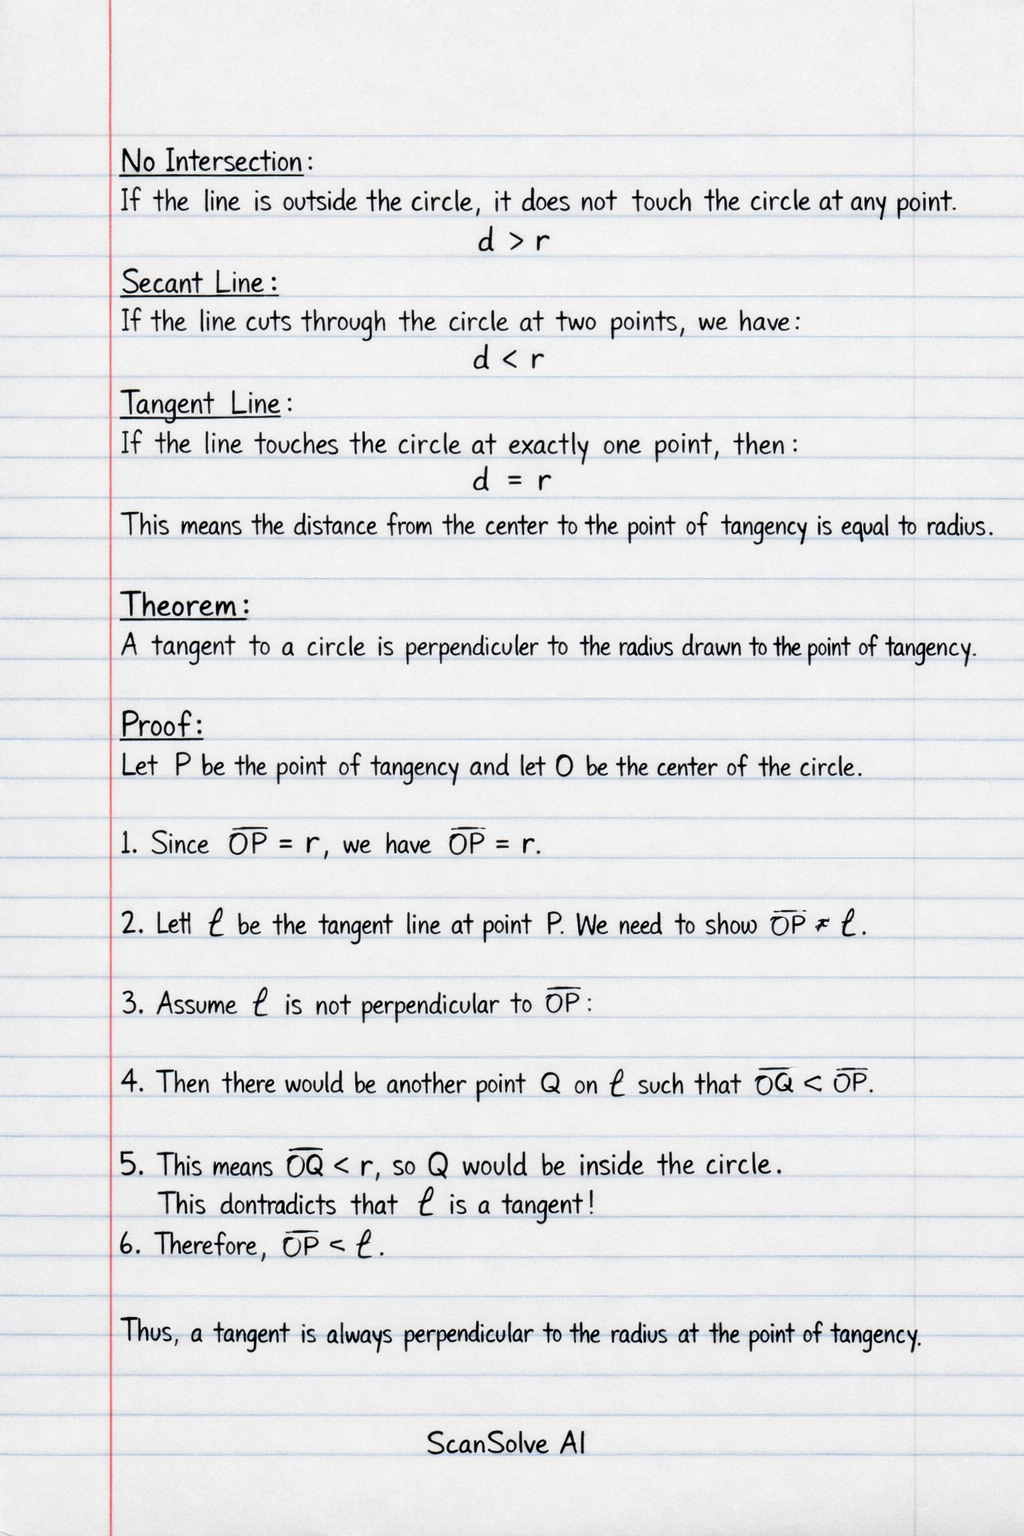 No Intersection:
If the line is outside the circle, it does not touch the circle at any point.
d > r
Secant Line:
If the line cuts through the circle at two points, we have:
d < r
Tangent Line:
If the line touches the circle at exactly one point, then:
d = r
This means the distance from the center to the point of tangency is equal to radius.
Theorem:
A tangent to a circle is perpendiculer to the radius drawn to the point of tangency.
Proof:
Let P be the point of tangency and let O be the center of the circle.
1. Since O̅P̅ = r, we have O̅P̅ = r.
2. Letl ℓ be the tangent line at point P. We need to show O̅P̅ ℓ.
3. Assume ℓ is not perpendicular to O̅P̅:
4. Then there would be another point Q on ℓ such that O̅Q̅ < O̅P̅.
5. This means O̅Q̅ < r, so Q would be inside the circle.
This dontradicts that ℓ is a tangent!
6. Therefore, O̅P̅ < ℓ.
Thus, a tangent is always perpendicular to the radius at the point of tangency.
ScanSolve AI